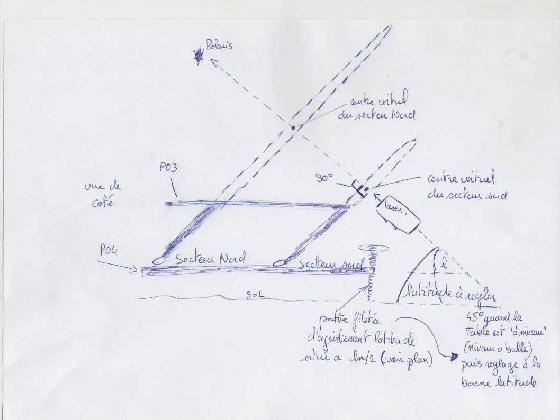 Polaris
centre virtuel
du secteur Nord
P03
90°
centre virtuel
du secteur sud
vue de
coté
laser
P04
Secteur Nord
secteur sud
SOL
latitude à régler
filetée
d'ajustement latitude
(voir plan)
45° quand la
Table est "à niveau"
(niveau à bulle)
puis réglage à la
bonne latitude